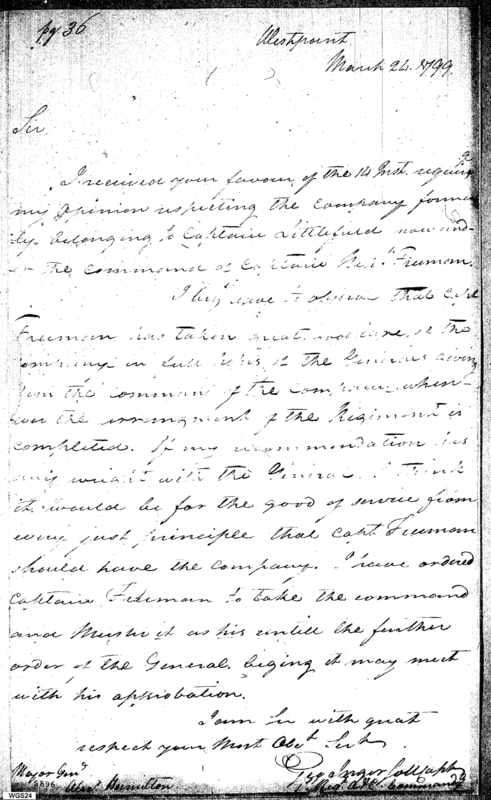 pg 36
Westpoint
March 24. 1799
Sir
I received your favour of the 14 Inst. requir
my Opinion respecting the Company former
ly belonging to Captain Littlefield now und
er the command of Captain Freeman.
I beg leave to observe that Capt
Freeman has taken great good care of the
Company in full hopes of the Generals giving
him the command of the Company when-
ever the arrangment of the Regiment is
completed. If my recommendation has
any weight with the General. I think
it would be for the good of service from
every just principle that Capt Freeman
should have the Company. I have ordered
Captain Freeman to take the command
and Muster it as his untill the further
order of the General. beging it may meet
with his approbation.
I am Sir with great
respect your Most Obt Servt
Major Genl
Alexr Hamilton
Command
WGS24